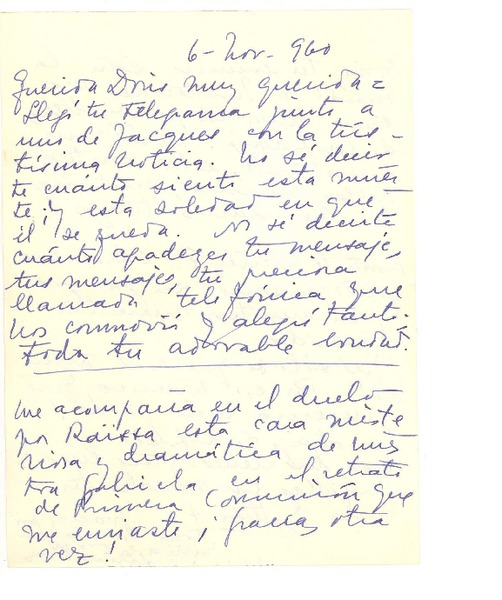 6 - Nov. 960
Querida Doris muy querida =
Llegó tu telegrama junto a
uno de Jacques con la tris-
tísima noticia. No sé decir
te cuánto siento esta muer
te; y esta soledad en que
él se queda. No sé decirte
cuánto agradezco tu mensaje,
tus mensajes, tu preciosa
llamada telefónica que
nos conmovió y alegró tanto.
Toda tu adorable bondad.
Me acompaña en el duelo
por Raïssa esta cara miste
riosa y dramática de nues
tra Gabriela en el retrato
de Primera Comunión que
me enviaste ¡ gracias otra
vez!